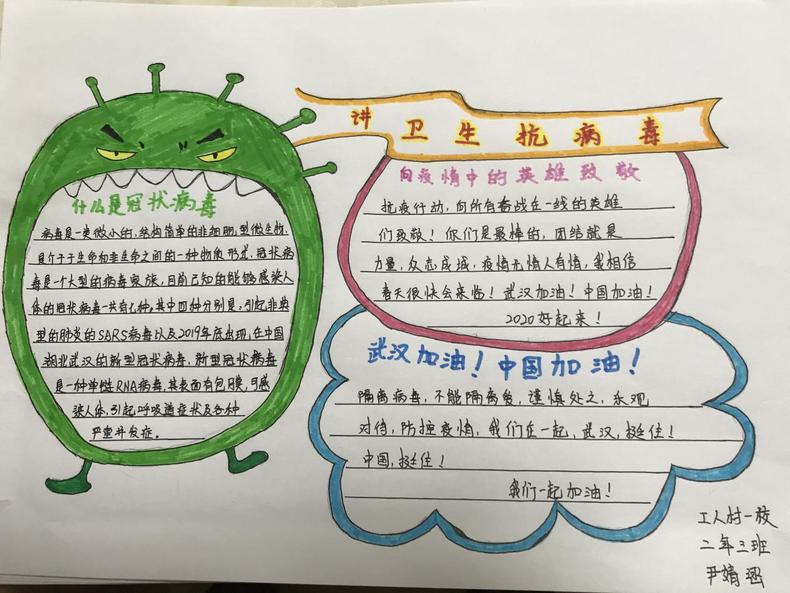 讲卫生抗病毒
什么是冠状病毒
病毒是一类微小的,结构简单的非细胞,型微生物,
是介于生命和非生命之间的一种物质形式,冠状病
毒是一个大型的病毒家族,目前已知的能够感染人
体的冠状病毒一共有七种,其中四种分别是,引起非典
型的肺炎的SARS病毒以及2019年底出现,在中国
湖北武汉的新型冠状病毒,新型冠状病毒
是一种单链RNA病毒,其表面有包膜,可感
染人体,引起呼吸道症状及各种
严重并发症。
向疫情中的英雄致敬
抗疫行动,向所有奋战在一线的英雄
们致敬!你们是最棒的,团结就是
力量,众志成城,疫情无情人有情,我相信
春天很快会来临!武汉加油!中国加油!
2020好起来!
武汉加油!中国加油!
隔离病毒,不能隔离爱,谨慎处之,乐观
对待,防控疫情,我们在一起,武汉,挺住!
中国,挺住!
我们一起加油!
工人村一校
二年三班
尹婧涵